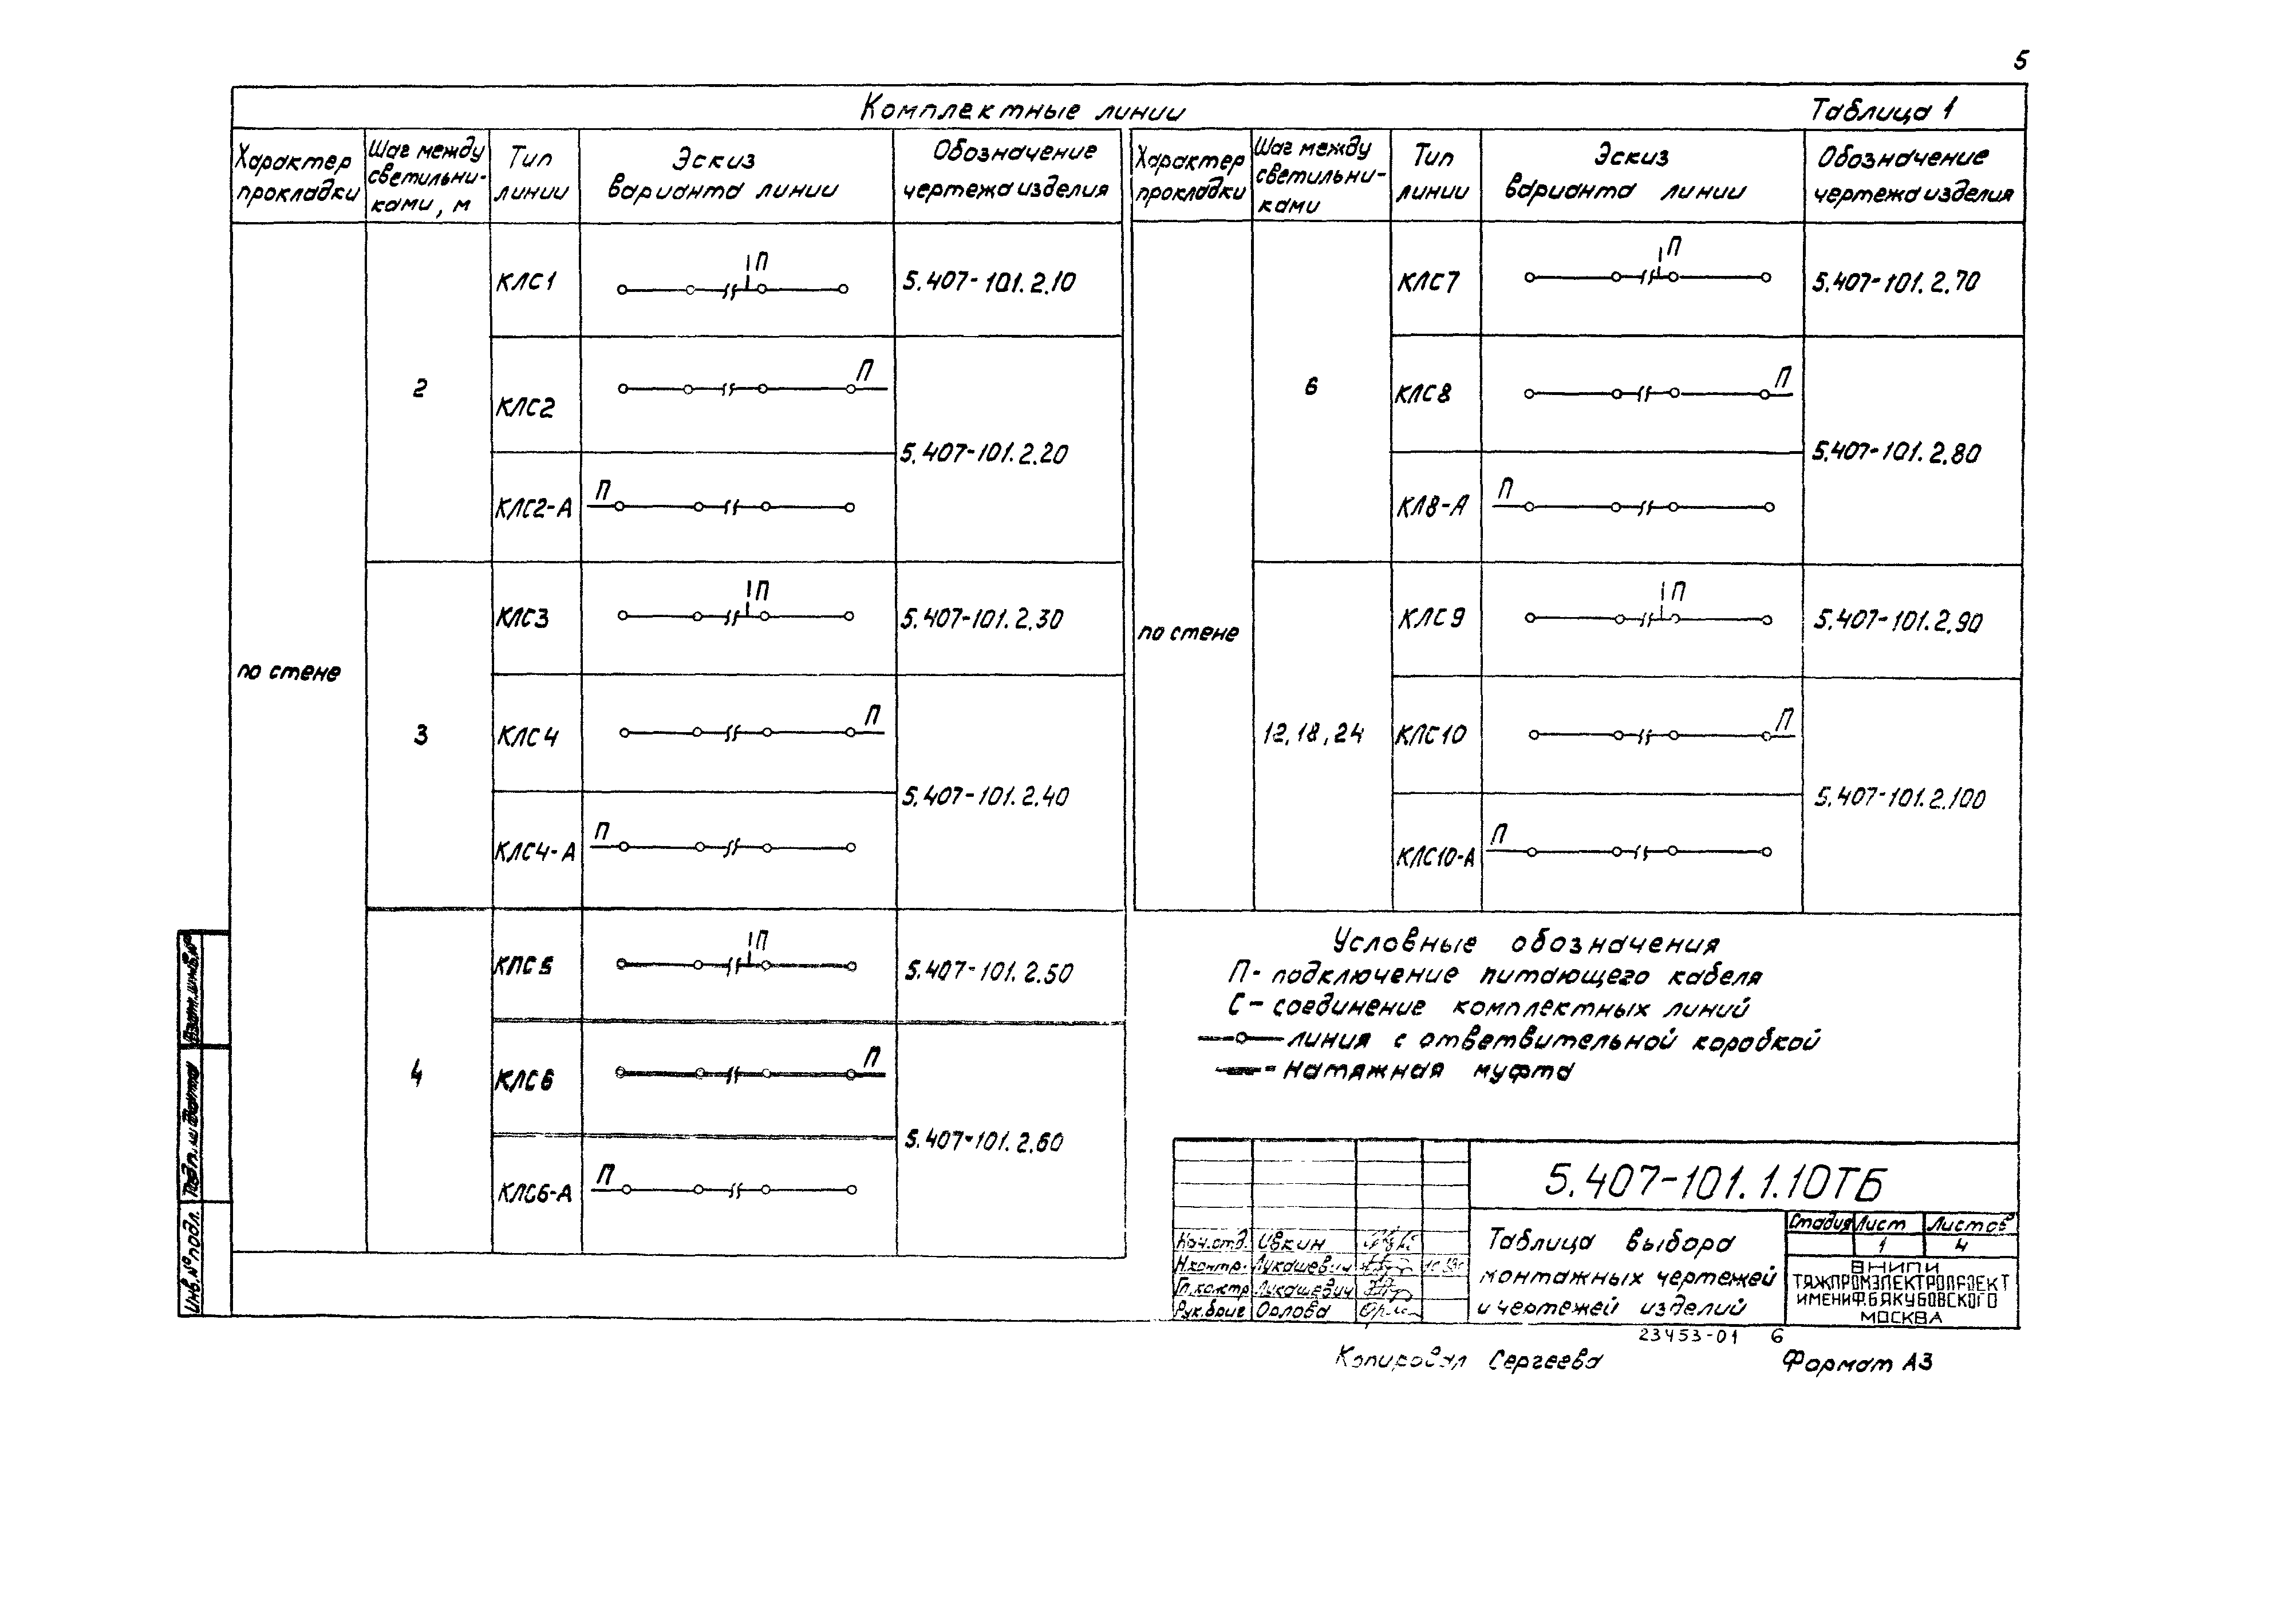 5
Комплектные линии
Таблица 1
Характер прокладки
Шаг между светильни-ками, м
Тип линии
Эскиз варианта линии
Обозначение чертежа изделия
Характер прокладки
Шаг между светильни-ками
Тип линии
Эскиз варианта линии
Обозначение чертежа изделия
по стене
2
КЛС1
П
5.407-101.2.10
КЛС2
П
5.407-101.2.20
КЛС2-А
П
3
КЛС3
П
5.407-101.2.30
КЛС4
П
5.407-101.2.40
КЛС4-А
П
4
КЛС5
П
5.407-101.2.50
КЛС6
П
5.407-101.2.60
КЛС6-А
П
по стене
6
КЛС7
П
5.407-101.2.70
КЛС8
П
5.407-101.2.80
КЛ8-А
П
12, 18, 24
КЛС9
П
5.407-101.2.90
КЛС10
П
5.407-101.2.100
КЛС10-А
П
Условные обозначения
П- подключение питающего кабеля
С - соединение комплектных линий
линия с ответвительной коробкой
- натяжная муфта
5.407-101.1.10ТБ
Таблица выбора
монтажных чертежей
и чертежей изделий
Стадия Лист Листов
1 4
ВНИПИ
ТЯЖПРОМЭЛЕКТРОПРОЕКТ
ИМЕНИ Ф.Б.ЯКУБОВСКОГО
МОСКВА
Нач.отд. Ивкин
Н.контр. Лукашевич
Гл.констр Лукашевич
Рук.бриг Орлова
23453-01 6
Копировал Сергеева
Формат А3
Взам.инв.№
Подп. и дата
Инв.№ подл.